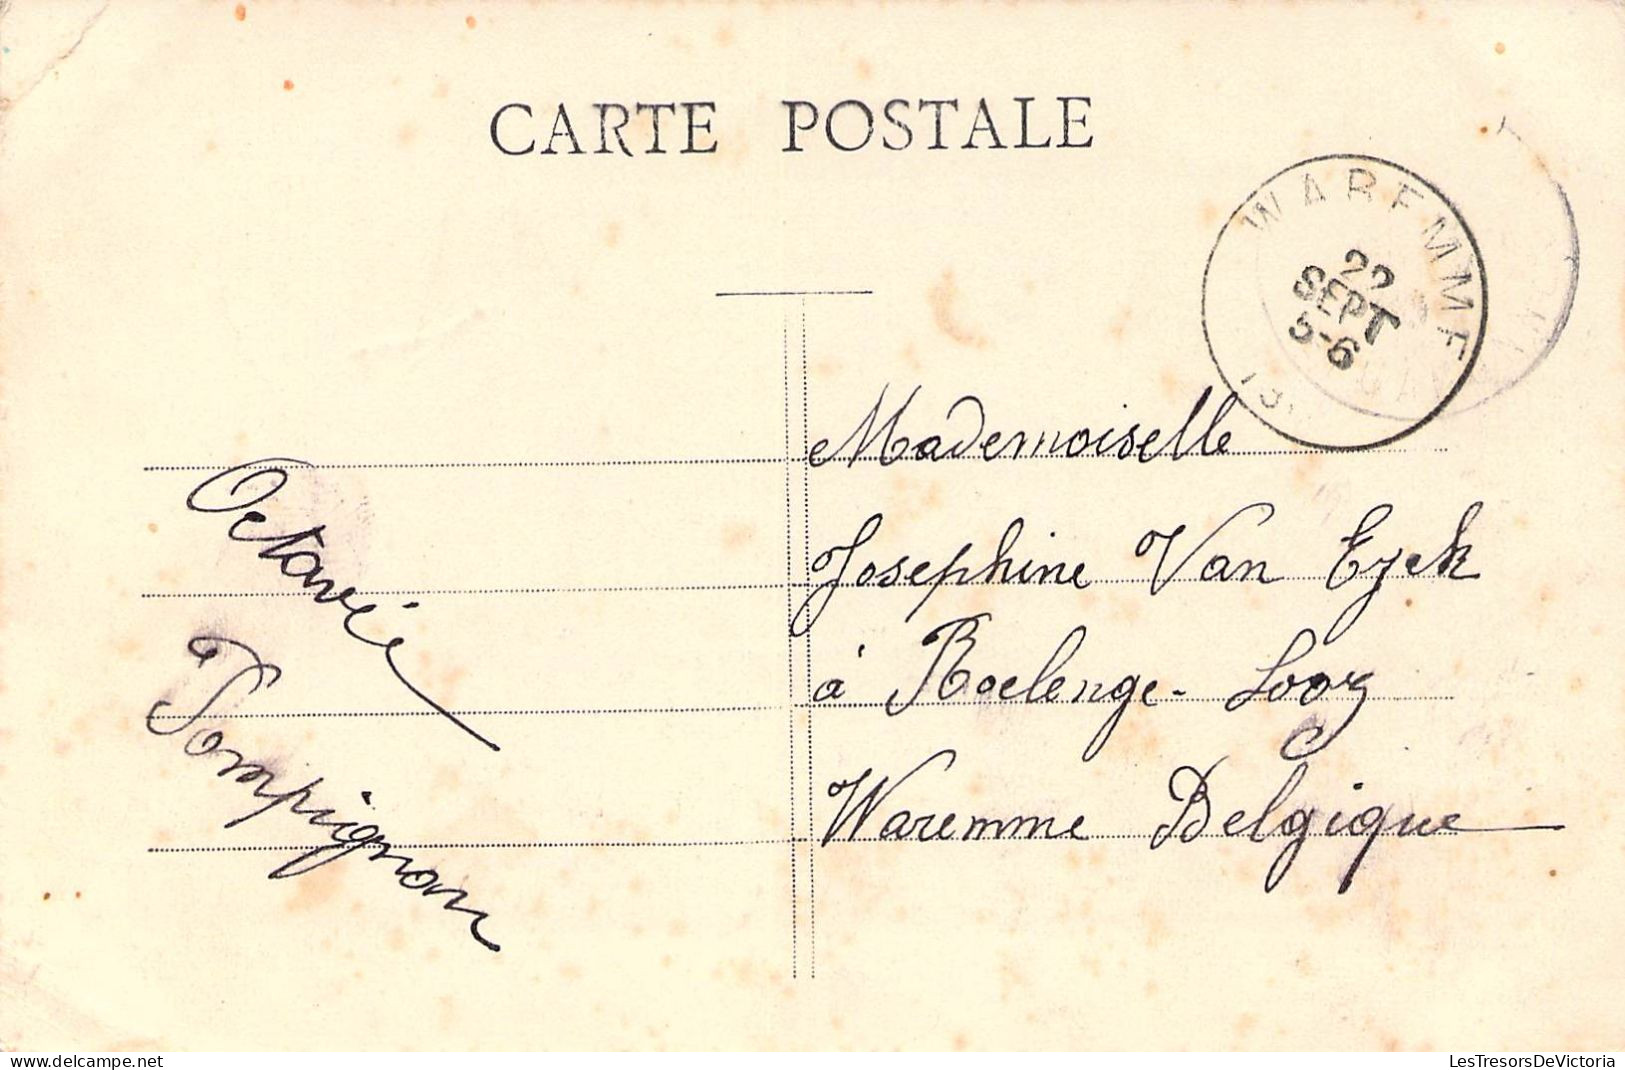 CARTE POSTALE
WAREMME
22
SEPT
5-6
Mademoiselle
Josephine Van Eyck
à Roclenge-Looz
Waremme Belgique
Octavie
Pompignon
delcampe.net
LesTresorsDeVictoria